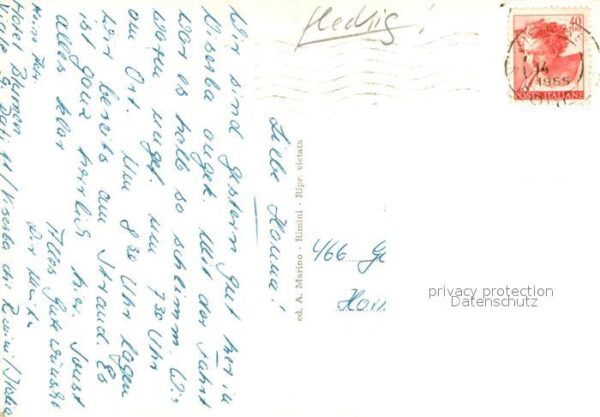 Hedwig!
40
LIRE
14
1965
POSTE ITALIANE
Liebe Hanna!
Wir sind gestern gut hier in
Viserba anget. Mit der Fahrt
war es halb so schlimm. Wir
waren ungef. um 7³⁰ Uhr
am Ort. Um 8³⁰ Uhr lagen
wir bereits am Strand. Es
ist ganz herrlich hier. Sonst
alles klar
Alles Gute wünscht
Dir
Meine
Hotel
Viale G. Dati 91 / Viserba di Rimini / Italia
ed. A. Marino - Rimini - Ripr. vietata
466 G
Hor
privacy protection
Datenschutz